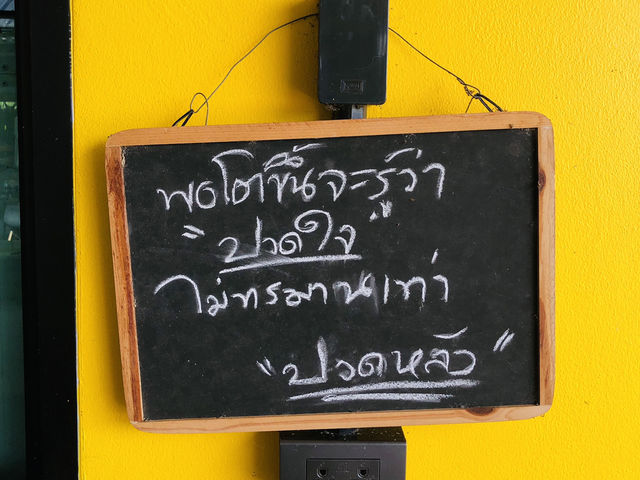 พอโตขึ้นจะรู้ว่า
"ปวดใจ"
ไม่ทรมานเท่า
"ปวดหลัง"